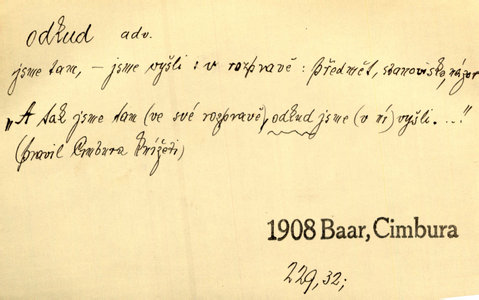 odkud adv.
jsme tam, – jsme vyšli : v rozpravě : předmět, stanovisko, názor
„A tak jsme tam (ve své rozpravě), odkud jsme (v ní) vyšli. ..."
(pravil Cimbura Knížeti)
1908 Baar, Cimbura
229, 32;